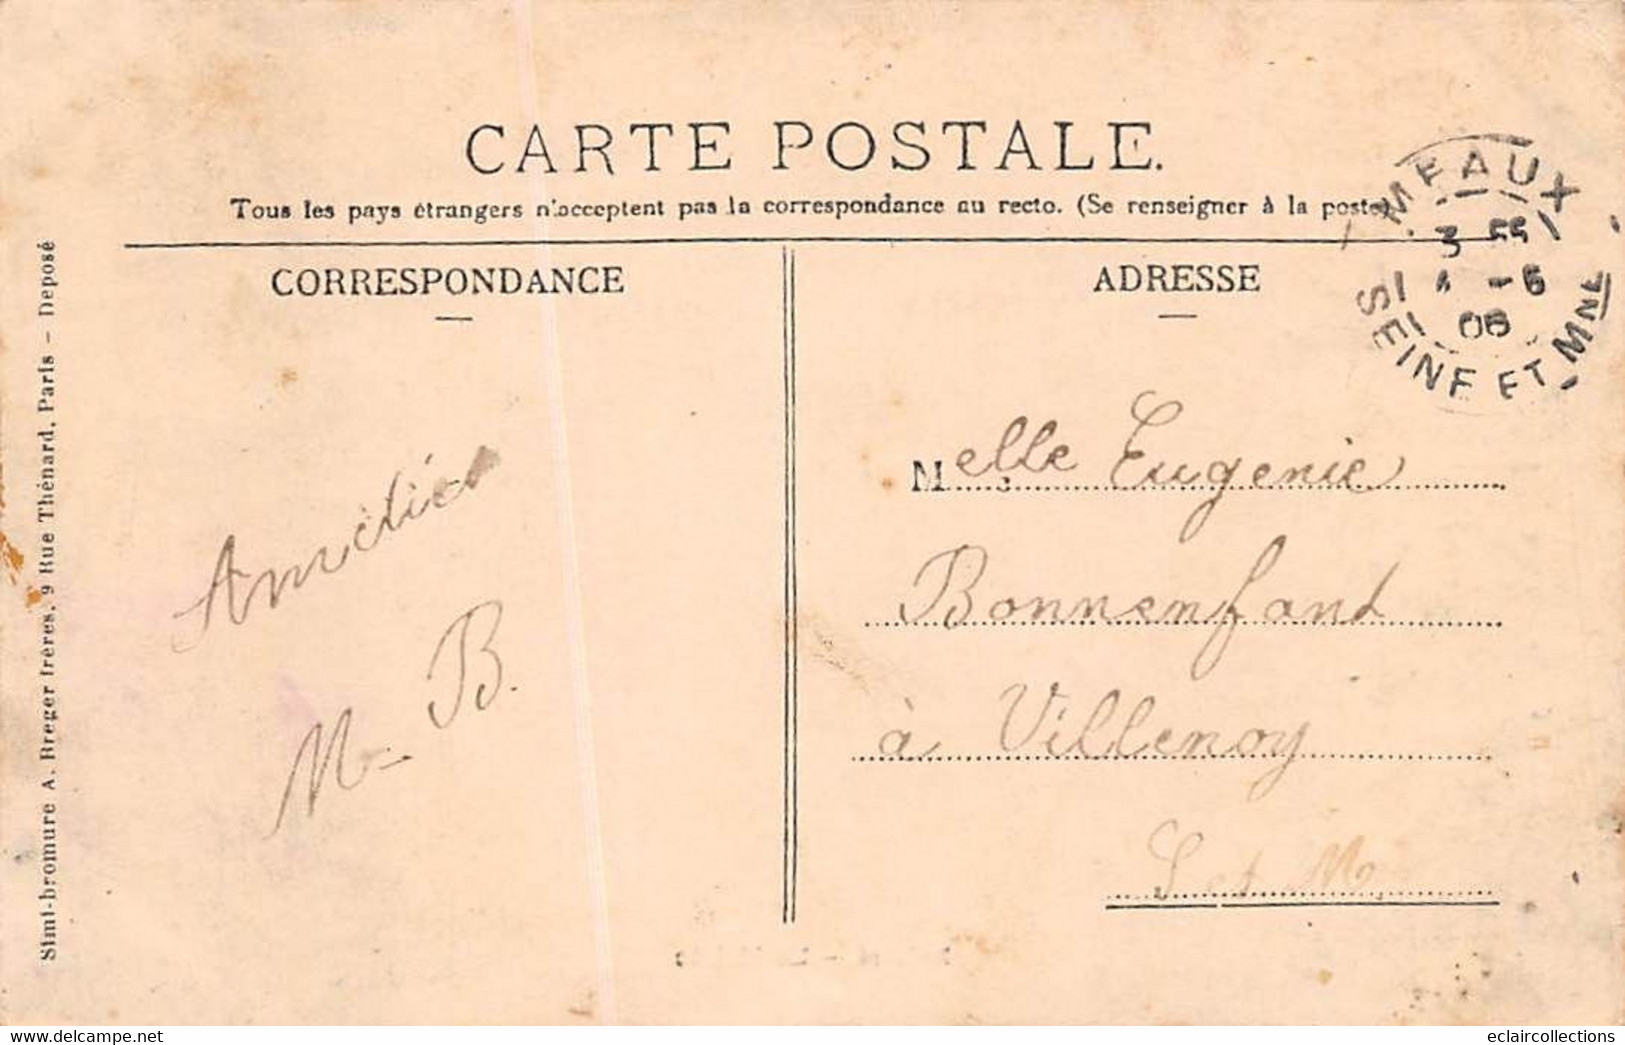 CARTE POSTALE.
Tous les pays étrangers n'acceptent pas la correspondance au recto. (Se renseigner à la poste)
CORRESPONDANCE
ADRESSE
MEAUX
3 55
-6
06
SEINE ET MNE
Simi-bromure A. Breger frères, 9 Rue Thénard, Paris – Déposé
Amitiés
M B.
Melle Eugenie
Bonnenfant
à Villenoy
S et M
delcampe.net
eclaircollections